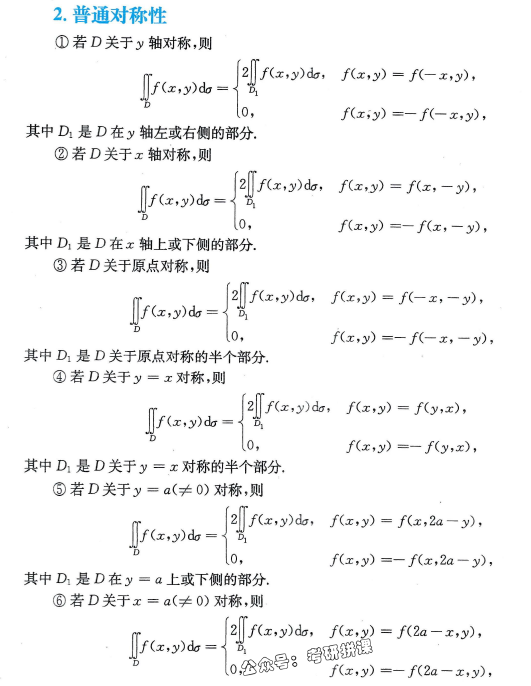 2. 普通对称性
① 若 D 关于 y 轴对称,则
∬_D f(x,y)dσ = { 2∬_{D₁} f(x,y)dσ, f(x,y) = f(−x,y),
0, f(x,y) =− f(−x,y),
其中 D₁ 是 D 在 y 轴左或右侧的部分.
② 若 D 关于 x 轴对称,则
∬_D f(x,y)dσ = { 2∬_{D₁} f(x,y)dσ, f(x,y) = f(x,−y),
0, f(x,y) =− f(x,−y),
其中 D₁ 是 D 在 x 轴上或下侧的部分.
③ 若 D 关于原点对称,则
∬_D f(x,y)dσ = { 2∬_{D₁} f(x,y)dσ, f(x,y) = f(−x,−y),
0, f(x,y) =− f(−x,−y),
其中 D₁ 是 D 关于原点对称的半个部分.
④ 若 D 关于 y = x 对称,则
∬_D f(x,y)dσ = { 2∬_{D₁} f(x,y)dσ, f(x,y) = f(y,x),
0, f(x,y) =− f(y,x),
其中 D₁ 是 D 关于 y = x 对称的半个部分.
⑤ 若 D 关于 y = a(≠ 0) 对称,则
∬_D f(x,y)dσ = { 2∬_{D₁} f(x,y)dσ, f(x,y) = f(x,2a−y),
0, f(x,y) =− f(x,2a−y),
其中 D₁ 是 D 在 y = a 上或下侧的部分.
⑥ 若 D 关于 x = a(≠ 0) 对称,则
∬_D f(x,y)dσ = { 2∬_{D₁} f(x,y)dσ, f(x,y) = f(2a−x,y),
0, f(x,y) =− f(2a−x,y),
公众号：考研拼课